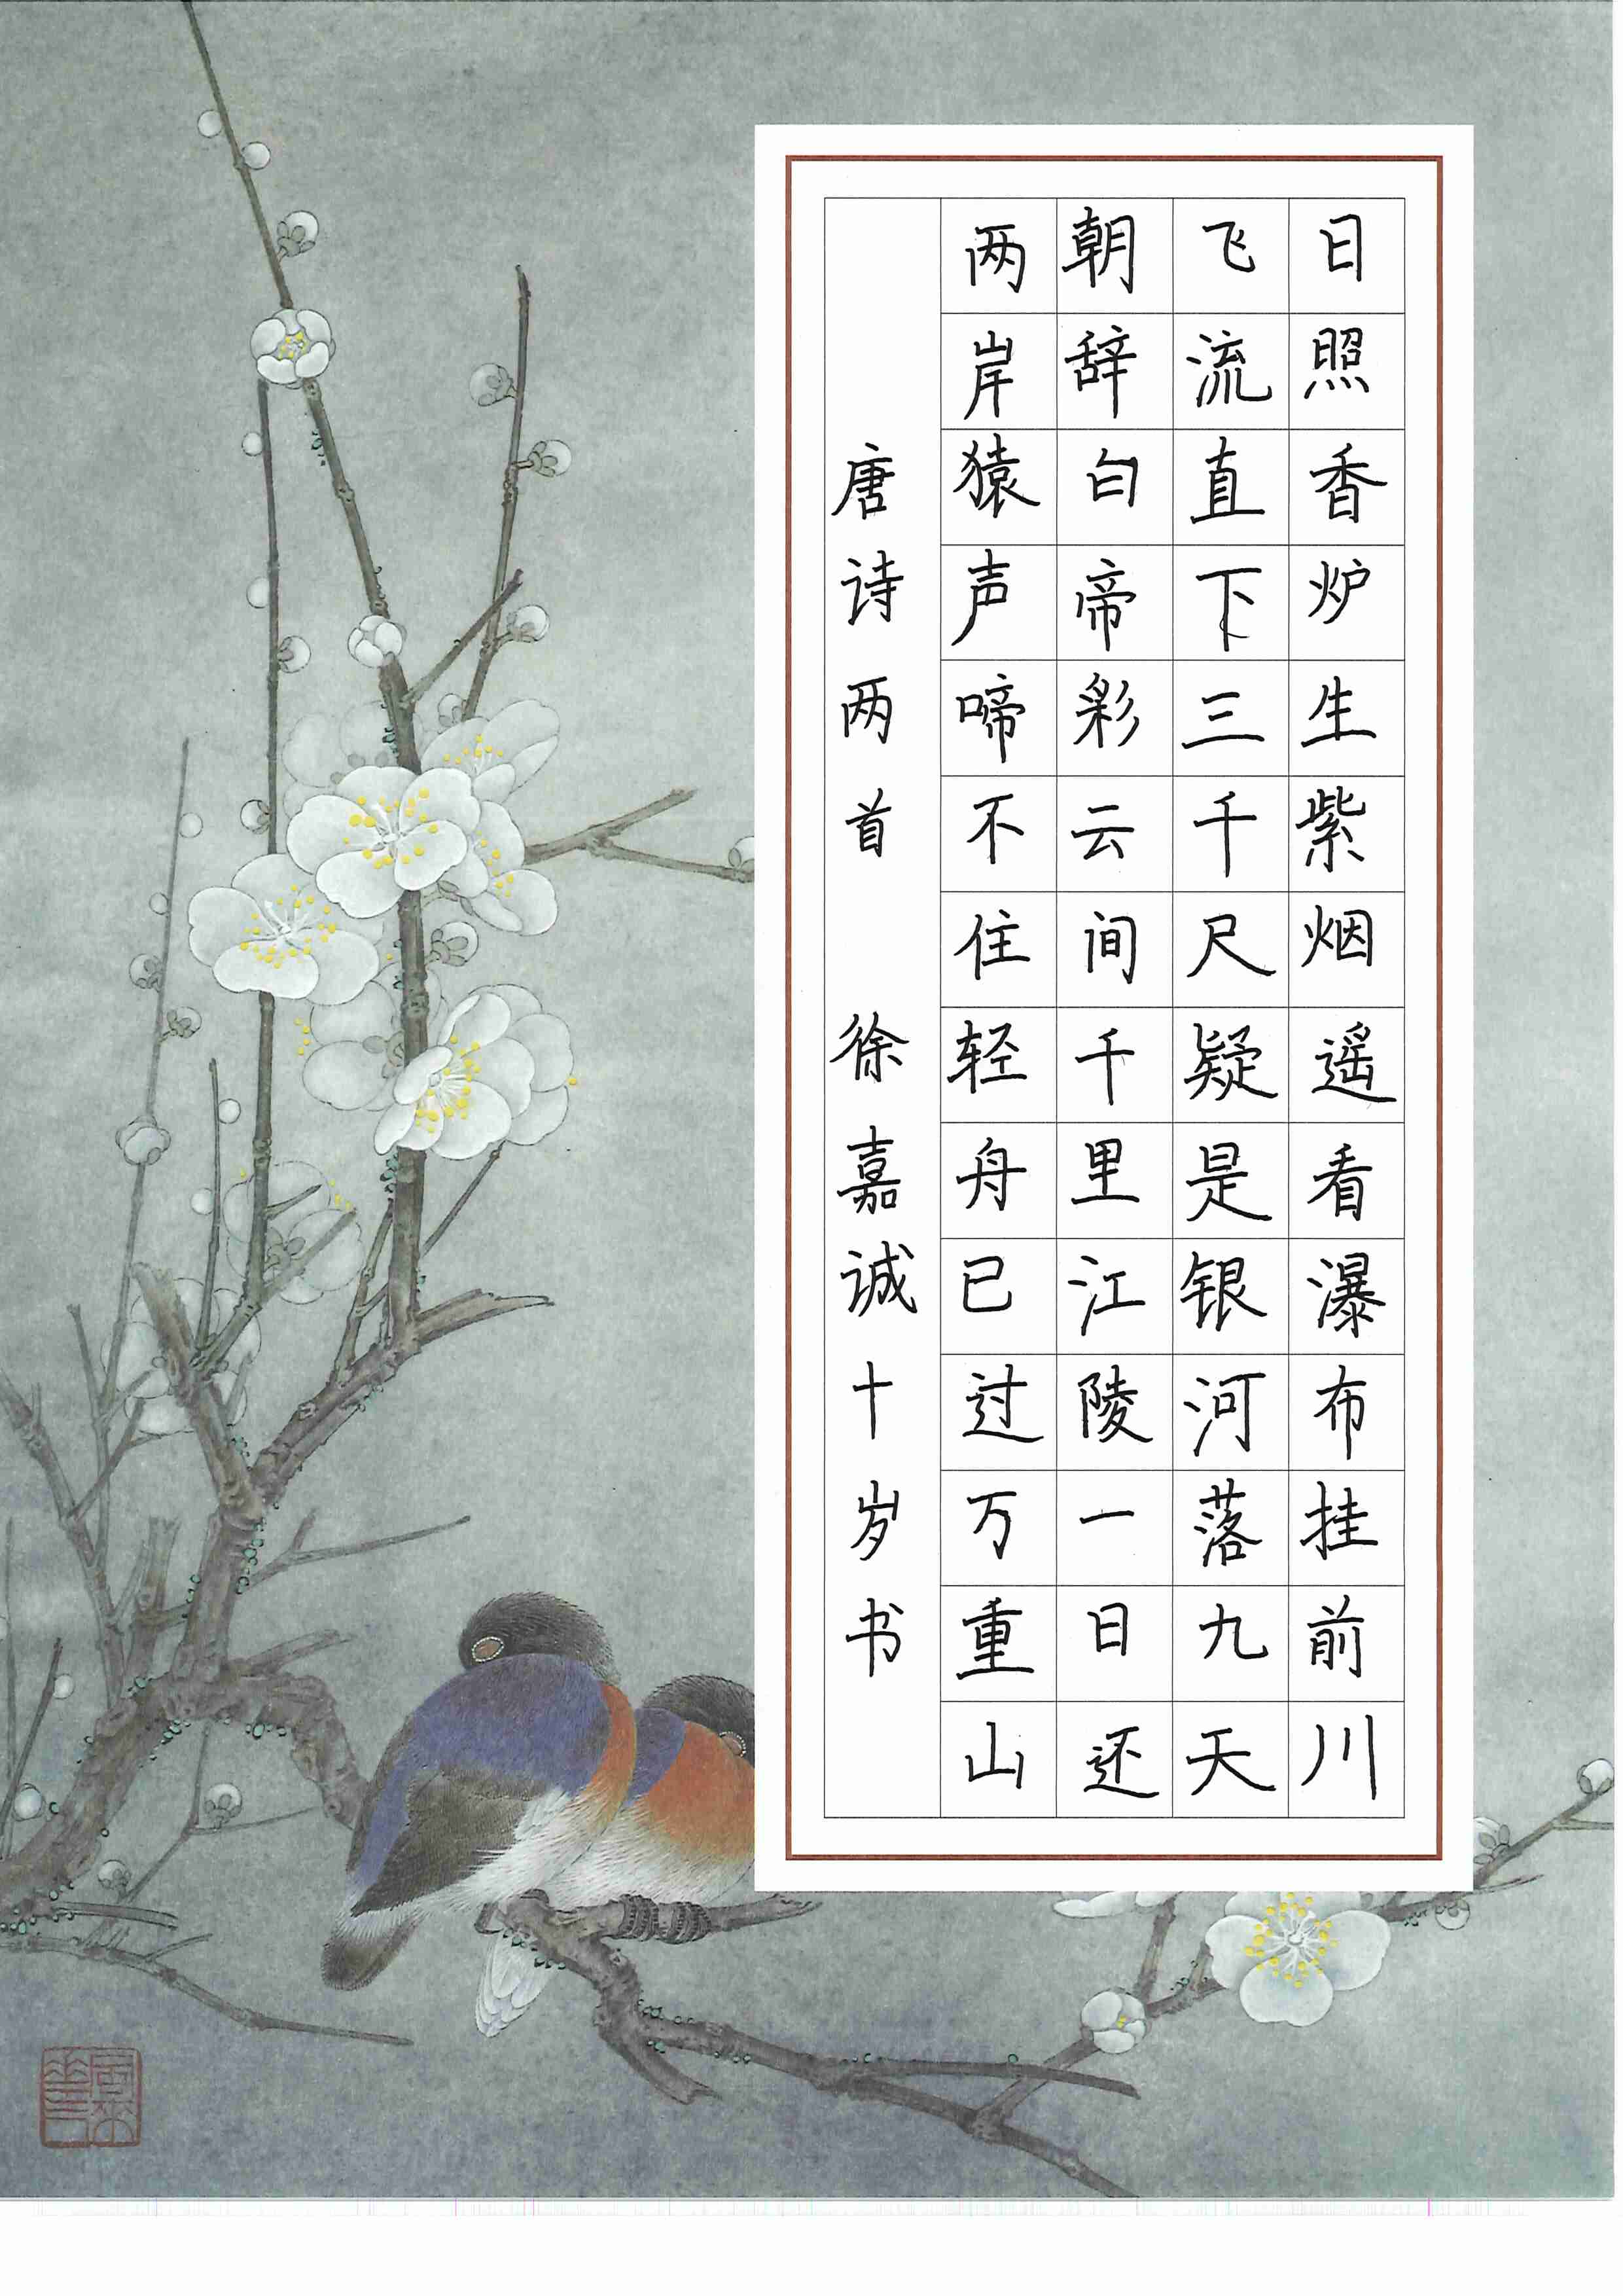 日照香炉生紫烟遥看瀑布挂前川
飞流直下三千尺疑是银河落九天
朝辞白帝彩云间千里江陵一日还
两岸猿声啼不住轻舟已过万重山
唐诗两首 徐嘉诚十岁书